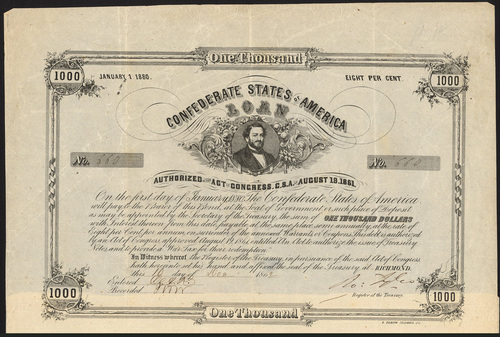 One Thousand
1000
JANUARY 1 1880.
EIGHT PER CENT.
1000
CONFEDERATE STATES OF AMERICA
LOAN
No. 660
No. 660
AUTHORIZED BY ACT OF CONGRESS, C.S.A. OF AUGUST 19, 1861.
On the first day of January, 1880, The Confederate States of America
will pay to the Bearer of this Bond, at the Seat of Government or such place of Deposit
as may be appointed by the Secretary of the Treasury, the sum of ONE THOUSAND DOLLARS
with Interest thereon from this date, payable at the same place, semi-annually, at the rate of
Eight per Cent. per annum, on surrender of the annexed Warrants or Coupons. This debt is authorized
by an Act of Congress, approved August 19, 1861, entitled An Act to authorize the issue of Treasury
Notes, and to provide a War Tax for their redemption.
In Witness whereof, the Register of the Treasury, in pursuance of the said Act of Congress
hath hereunto set his hand and affixed the seal of the Treasury, at RICHMOND,
this day of 186
Entered
Recorded
Register of the Treasury.
1000
One Thousand
1000